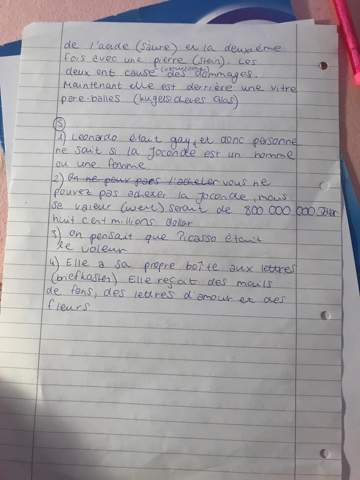 de l'acide (säure) et la deuxième
fois avec une pierre (stein). Les
deux ont causé des dommages.
Maintenant elle est derrière une vitre
pare-balles (kugelsicheres Glas)
⑤
1) Leonardo était gay, et donc personne
ne sait si la Joconde est un homme
ou une femme
2) On ne peux pas l'acheter vous ne
pouvez pas acheter la Joconde, mais
se valeur (wert) serait de 800 000 000
huit cent millions dollar
3) On pensait que Picasso était
le voleur
4) Elle a sa propre boîte aux lettres
(briefkasten) Elle reçoit des mails
de fans, des lettres d'amour et des
fleurs